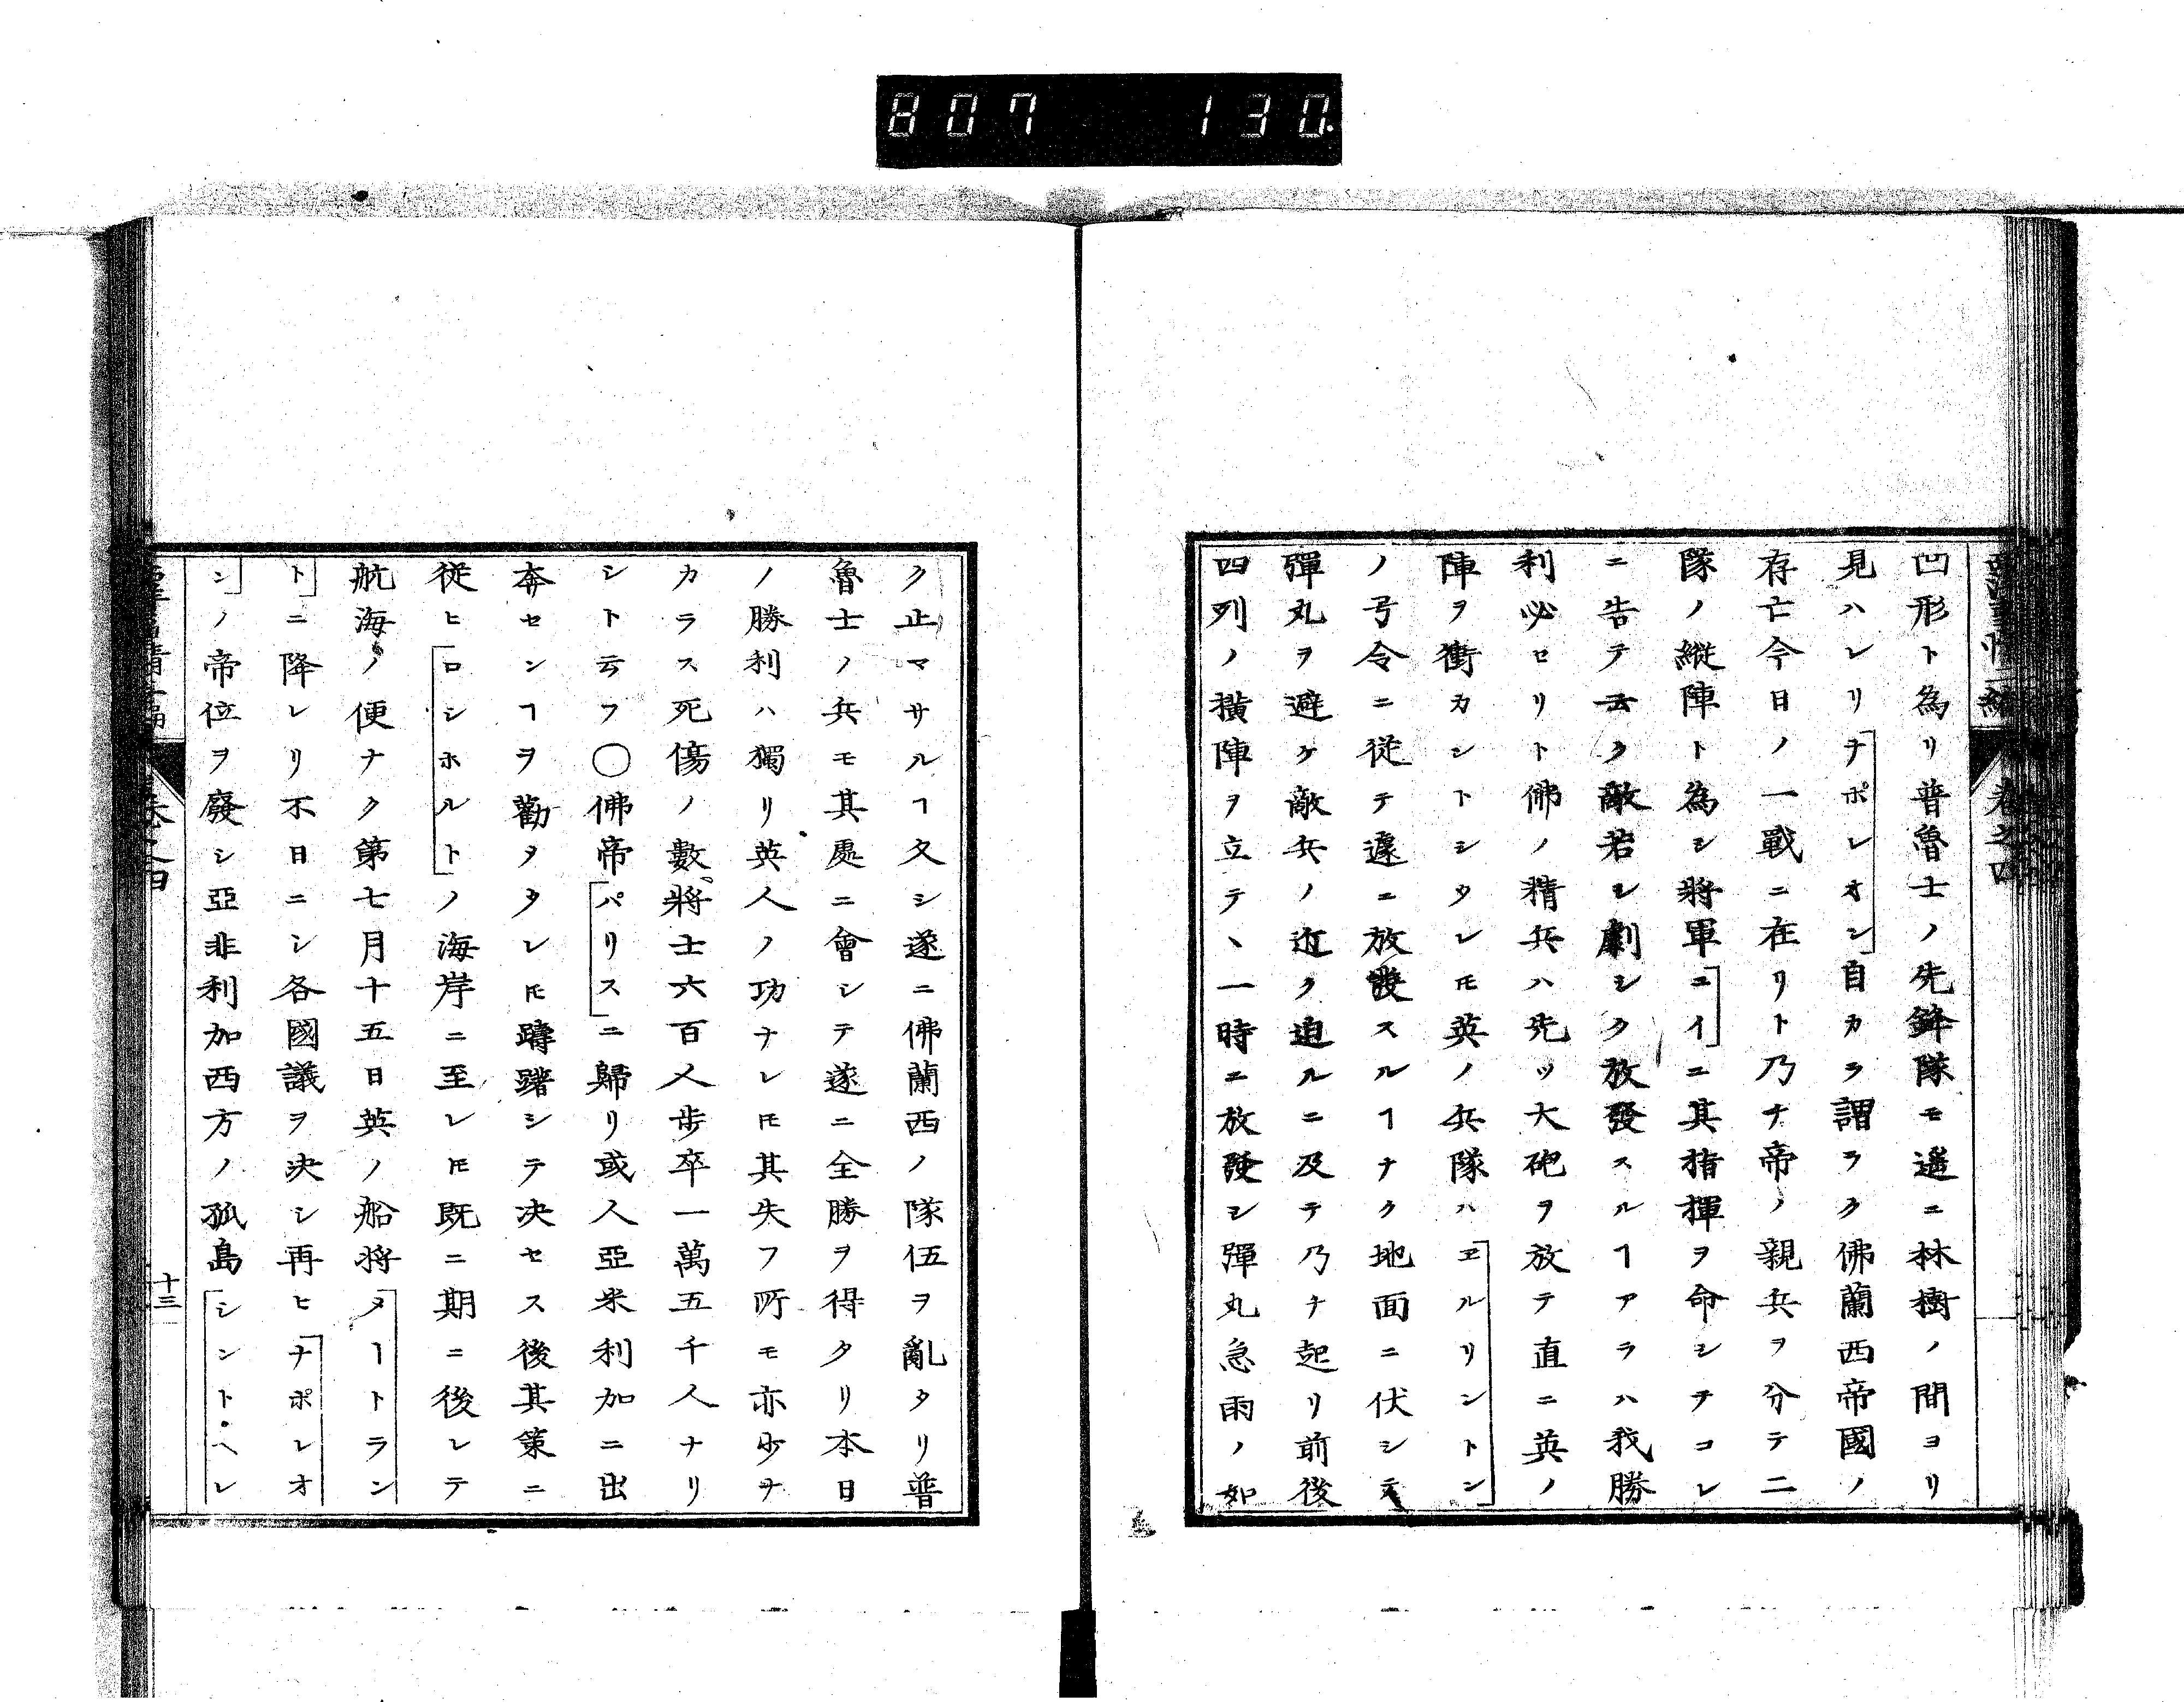 807 130.
凹形ト為リ普魯士ノ先鋒隊モ遥ニ林樹ノ間ヨリ
見ハレリ「ナポレオン」自カラ謂ラク佛蘭西帝國ノ
存亡今日ノ一戰ニ在リト乃チ帝ノ親兵ヲ分テ二
隊ノ縱陣ト為シ將軍「ニイ」ニ其指揮ヲ命シテコレ
ニ告テ云ク敵若シ劇シク放發スルヿアラハ我勝
利必セリト佛ノ精兵ハ先ツ大砲ヲ放テ直ニ英ノ
陣ヲ衝カントシタレ𪜈英ノ兵隊ハ「ヱルリントン」
ノ号令ニ從テ遽ニ放發スルヿナク地面ニ伏シテ
彈丸ヲ避ケ敵兵ノ近ク迫ルニ及テ乃チ起リ前後
四列ノ横陣ヲ立テヽ一時ニ放發シ彈丸急雨ノ如
ク止マサルヿ久シ遂ニ佛蘭西ノ隊伍ヲ亂タリ普
魯士ノ兵モ其處ニ會シテ遂ニ全勝ヲ得タリ本日
ノ勝利ハ獨リ英人ノ功ナレ𪜈其失フ所モ亦少ナ
カラス死傷ノ數將士六百人歩卒一萬五千人ナリ
シト云フ○佛帝「パリス」ニ歸リ或人亞米利加ニ出
奔センヿヲ勸タタレ𪜈躊躇シテ决セス後其策ニ
從ヒ「ロシホルト」ノ海岸ニ至レ𪜈既ニ期ニ後レテ
航海ノ便ナク第七月十五日英ノ船将「メートラン
ト」ニ降レリ不日ニシ各國議ヲ决シ再ヒ「ナポレオ
ン」ノ帝位ヲ廢シ亞非利加西方ノ孤島「シント・ヘレ
十三